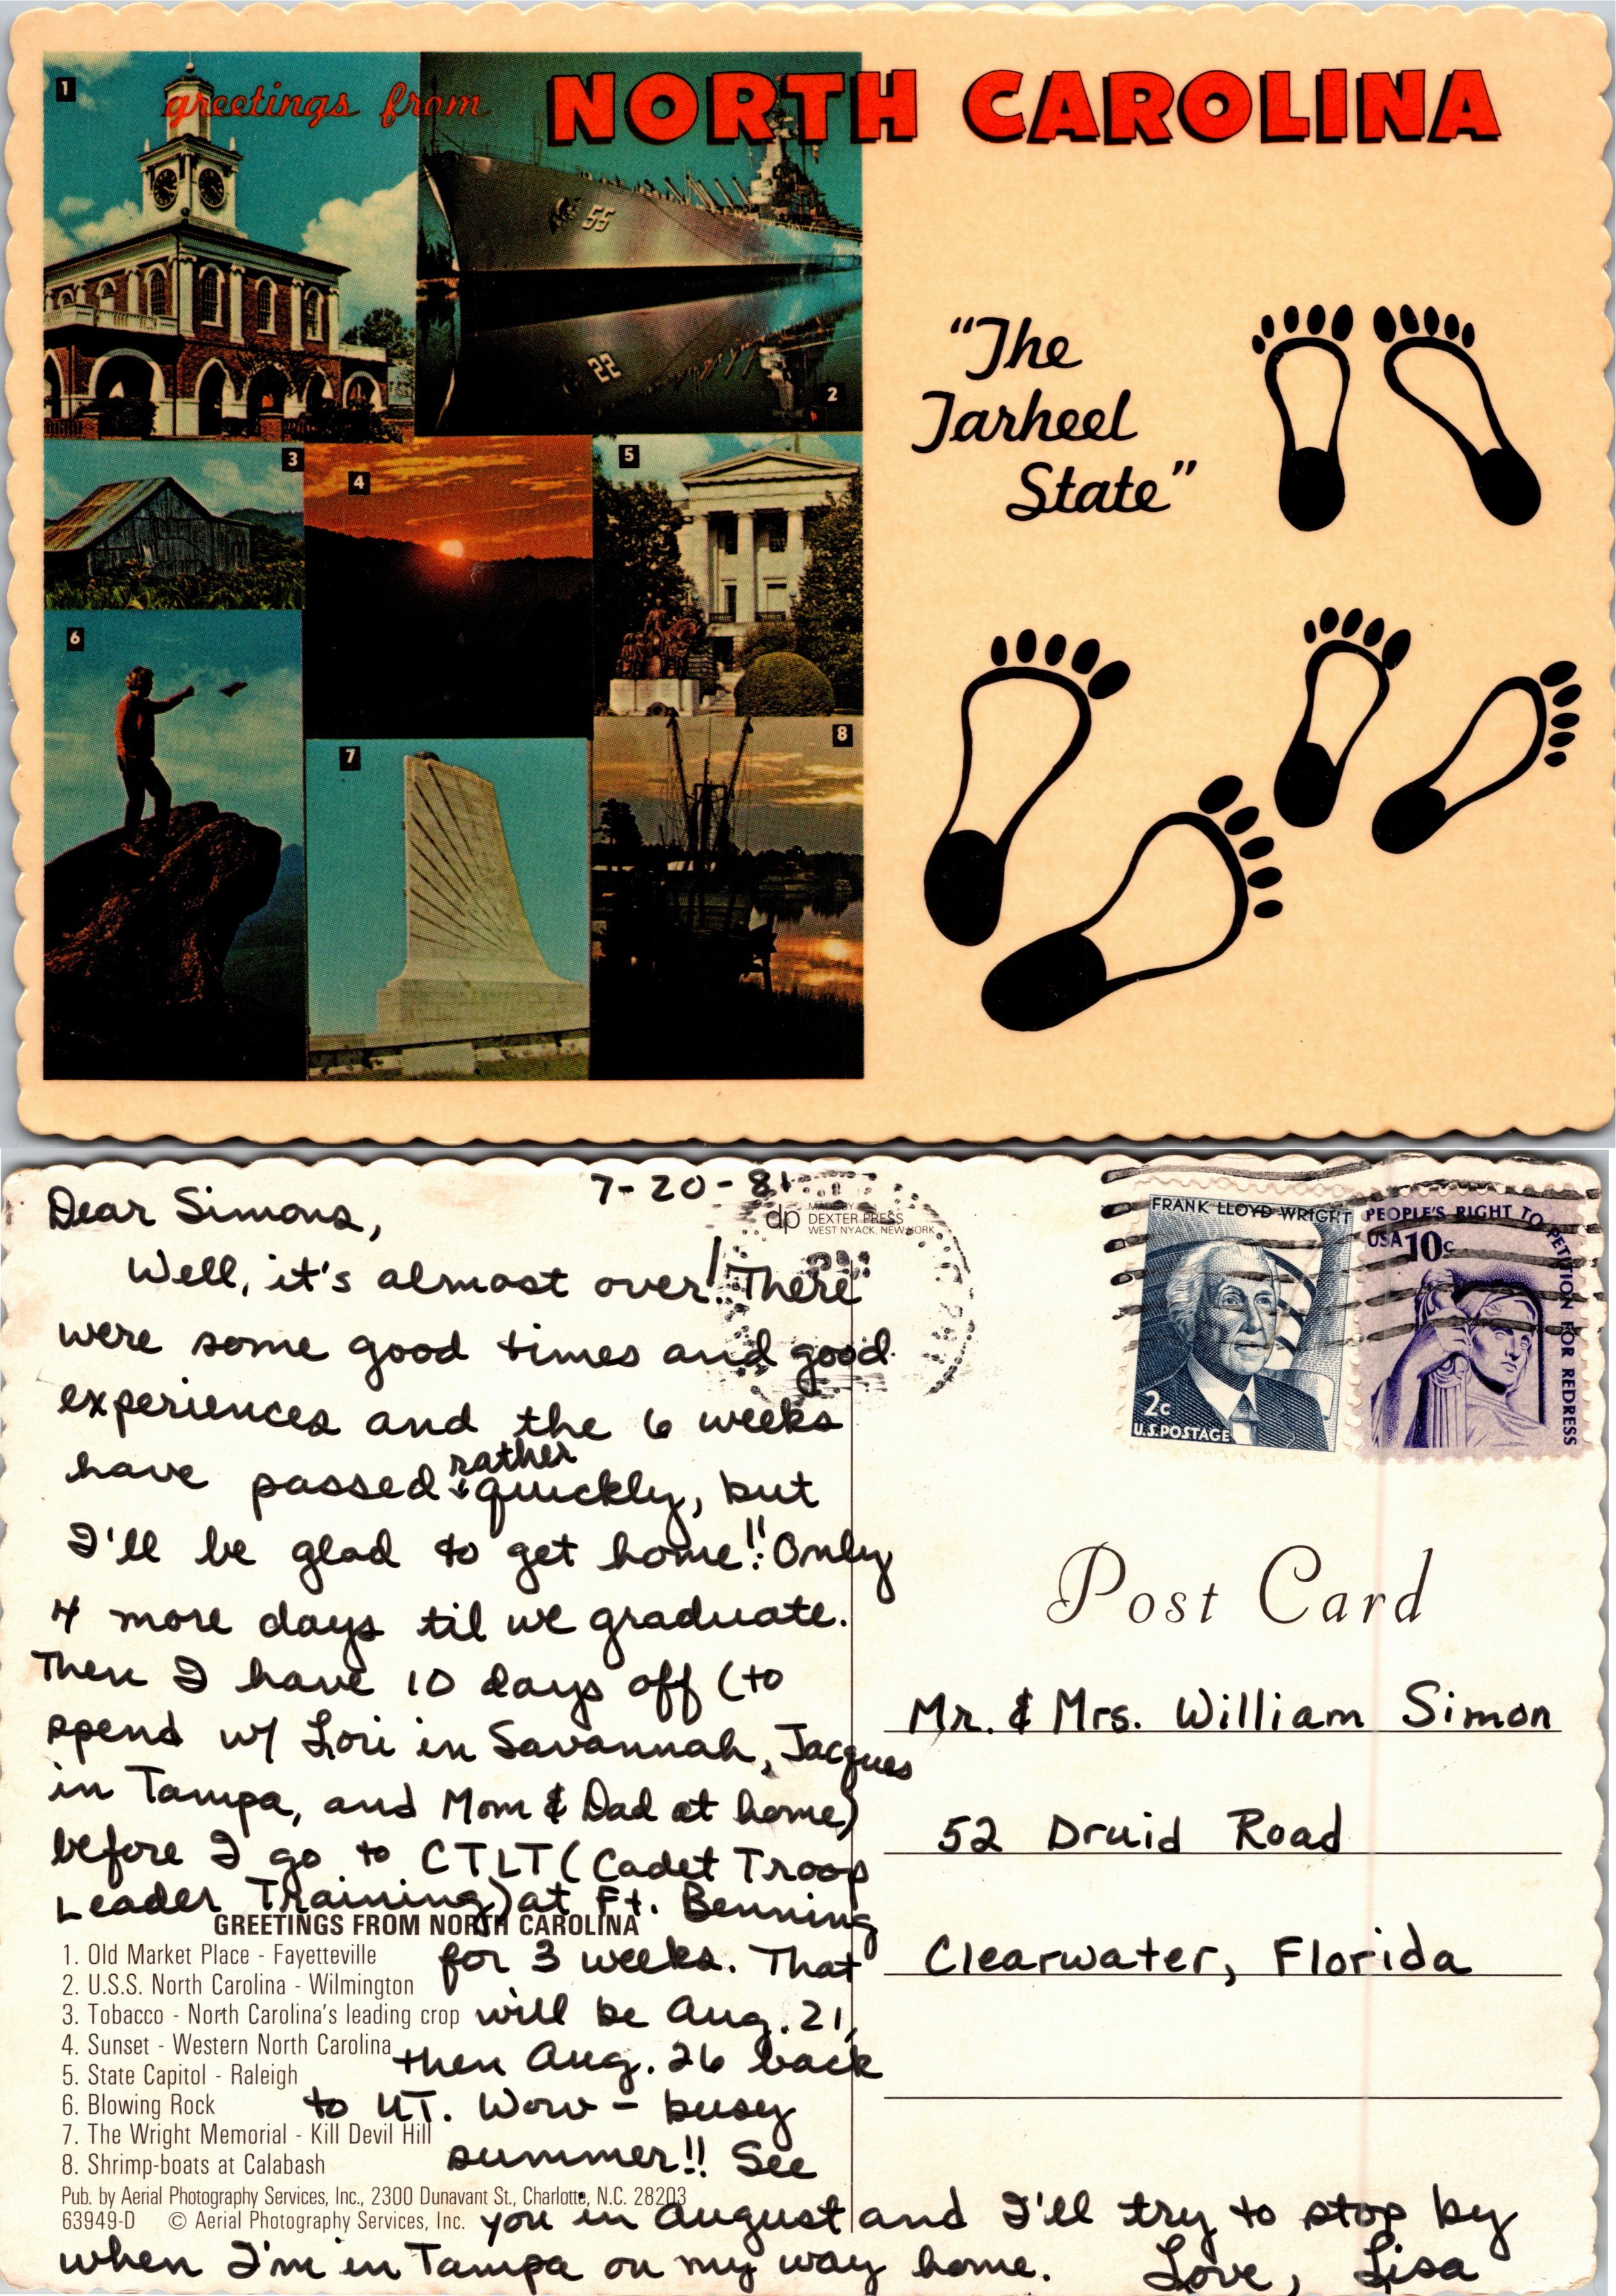 1
greetings from NORTH CAROLINA
55
22
2
3
4
5
6
7
8
"The
Tarheel
State"
7-20-81
Dear Simons,
Well, it's almost over! There
were some good times and good
experiences and the 6 weeks
have passed rather quickly, but
I'll be glad to get home!! Only
4 more days til we graduate.
Then I have 10 days off (to
spend w/ Lori in Savannah, Jacques
in Tampa, and Mom & Dad at home)
before I go to CTLT (Cadet Troop
Leader Training) at Ft. Benning
for 3 weeks. That
will be Aug. 21,
then Aug. 26 back
to UT. Wow - busy
summer!! See
you in August and I'll try to stop by
when I'm in Tampa on my way home. Love, Lisa
GREETINGS FROM NORTH CAROLINA
1. Old Market Place - Fayetteville
2. U.S.S. North Carolina - Wilmington
3. Tobacco - North Carolina's leading crop
4. Sunset - Western North Carolina
5. State Capitol - Raleigh
6. Blowing Rock
7. The Wright Memorial - Kill Devil Hill
8. Shrimp-boats at Calabash
Pub. by Aerial Photography Services, Inc., 2300 Dunavant St., Charlotte, N.C. 28203
63949-D © Aerial Photography Services, Inc.
dp
MADE BY
DEXTER PRESS
WEST NYACK, NEW YORK
FRANK LLOYD WRIGHT
2c
U.S. POSTAGE
PEOPLE'S RIGHT TO PETITION FOR REDRESS
USA 10c
Post Card
Mr. & Mrs. William Simon
52 Druid Road
Clearwater, Florida